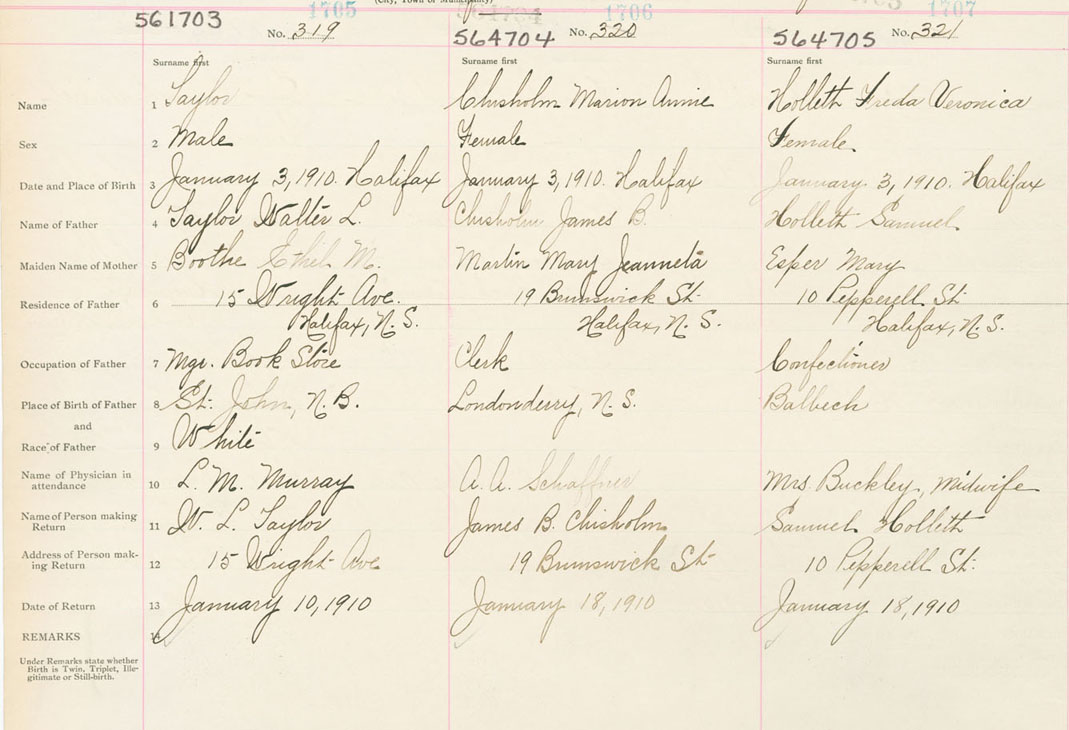 (City, Town or Municipality)
1705 1706 1707
561703 564704 564705
No. 319 No. 320 No. 321
Surname first Surname first Surname first
Name 1 Taylor Chisholm Marion Annie Holleth Freda Veronica
Sex 2 Male Female Female
Date and Place of Birth 3 January 3, 1910. Halifax January 3, 1910. Halifax January 3, 1910. Halifax
Name of Father 4 Taylor Walter L. Chisholm James B. Holleth Samuel
Maiden Name of Mother 5 Boothe Ethel M. Martin Mary Jeanneta Esper Mary
Residence of Father 6 15 Wright Ave. 19 Brunswick St. 10 Pepperell St.
Halifax, N.S. Halifax, N.S. Halifax, N.S.
Occupation of Father 7 Mgr. Book Store Clerk Confectioner
Place of Birth of Father 8 St. John, N.B. Londonderry, N.S. Balbech
and
Race of Father 9 White
Name of Physician in
attendance 10 L. M. Murray A. A. Schaffner Mrs Buckley, Midwife
Name of Person making
Return 11 W. L. Taylor James B. Chisholm Samuel Holleth
Address of Person mak-
ing Return 12 15 Wright Ave 19 Brunswick St. 10 Pepperell St.
Date of Return 13 January 10, 1910 January 18, 1910 January 18, 1910
REMARKS 14
Under Remarks state whether
Birth is Twin, Triplet, Ille-
gitimate or Still-birth.